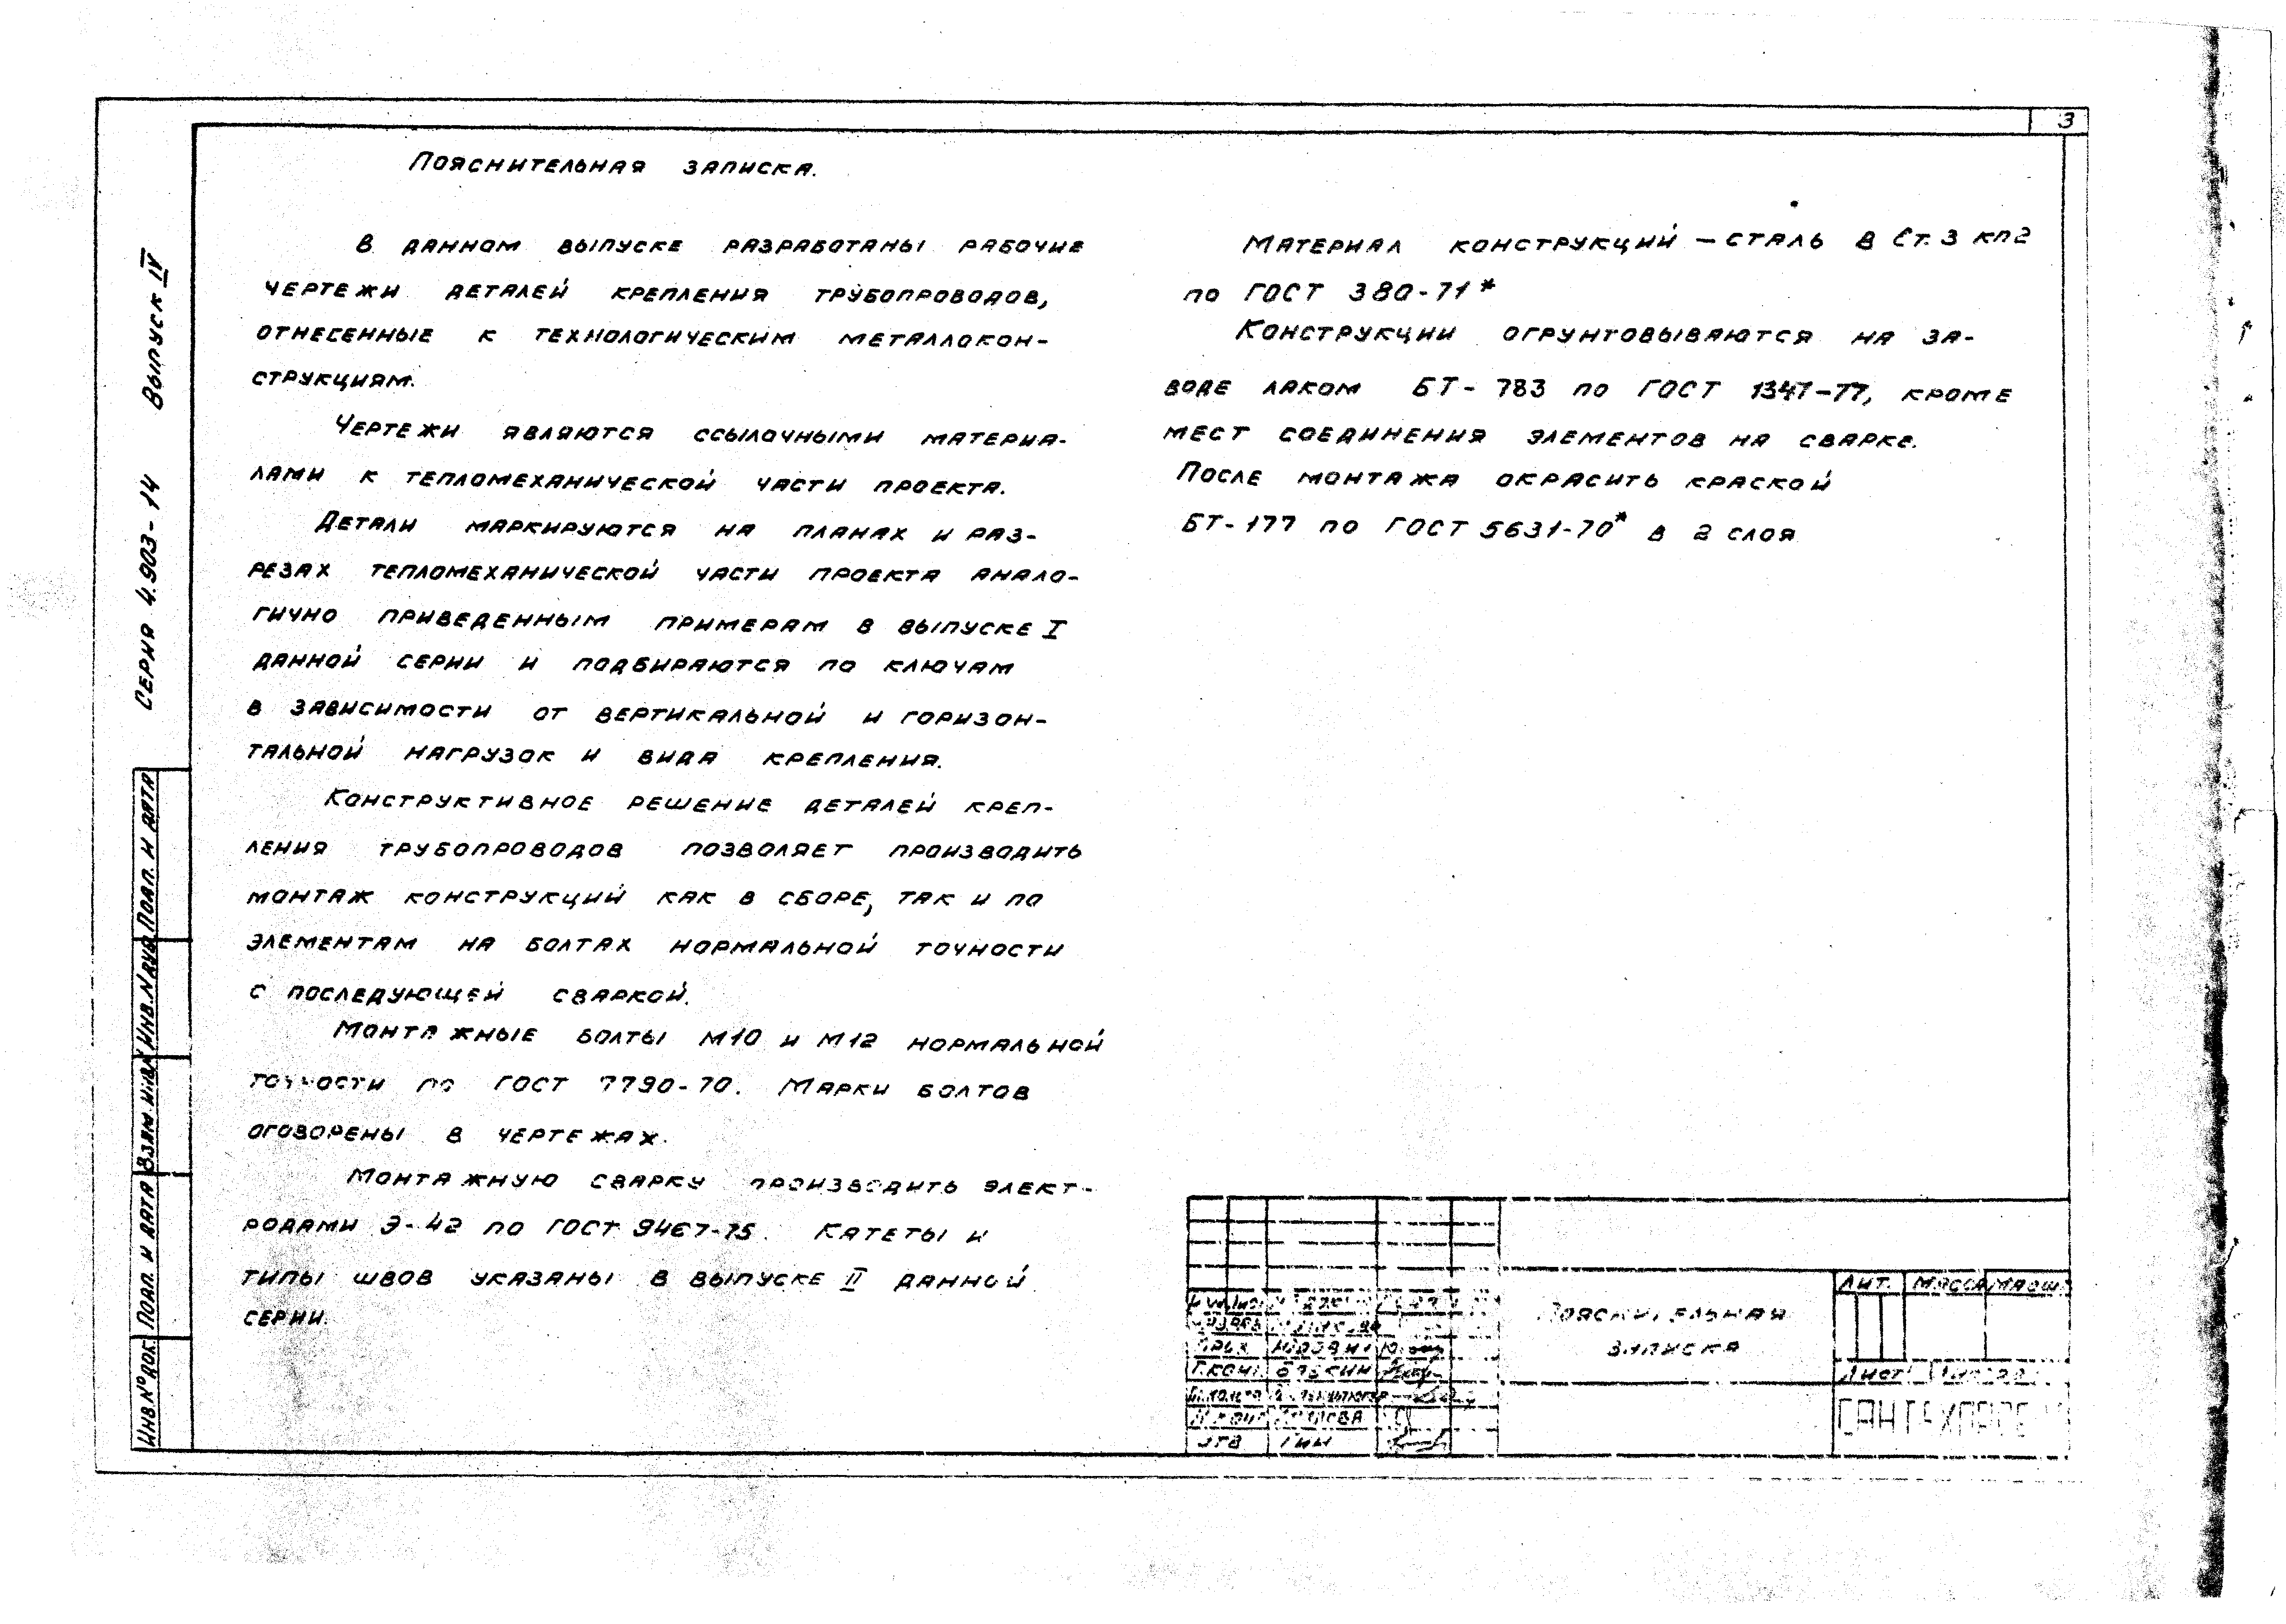 3
Пояснительная записка.
В данном выпуске разработаны рабочие
чертежи деталей крепления трубопроводов,
отнесенные к технологическим металлокон-
струкциям.
Чертежи являются ссылочными материа-
лами к тепломеханической части проекта.
Детали маркируются на планах и раз-
резах тепломеханической части проекта анало-
гично приведенным примерам в выпуске I
данной серии и подбираются по ключам
в зависимости от вертикальной и горизон-
тальной нагрузок и вида крепления.
Конструктивное решение деталей креп-
ления трубопроводов позволяет производить
монтаж конструкций как в сборе, так и по
элементам на болтах нормальной точности
с последующей сваркой.
Монтажные болты М10 и М12 нормальной
точности по ГОСТ 7790-70. Марки болтов
оговорены в чертежах.
Монтажную сварку производить элект-
родами Э-42 по ГОСТ 9467-75. Катеты и
типы швов указаны в выпуске II данной
серии.
Материал конструкций — сталь В Ст. 3 кп2
по ГОСТ 380-71*
Конструкции огрунтовываются на за-
воде лаком БТ-783 по ГОСТ 1347-77, кроме
мест соединения элементов на сварке.
После монтажа окрасить краской
БТ-177 по ГОСТ 5631-70* в 2 слоя
Серия 4.903-14 Выпуск IV
Инв.№ док. Подп. и дата Взам. инв.№ Инв.№дуб. Подп. и дата
Пояснительная
записка
Лит. Масса Масш.
Лист